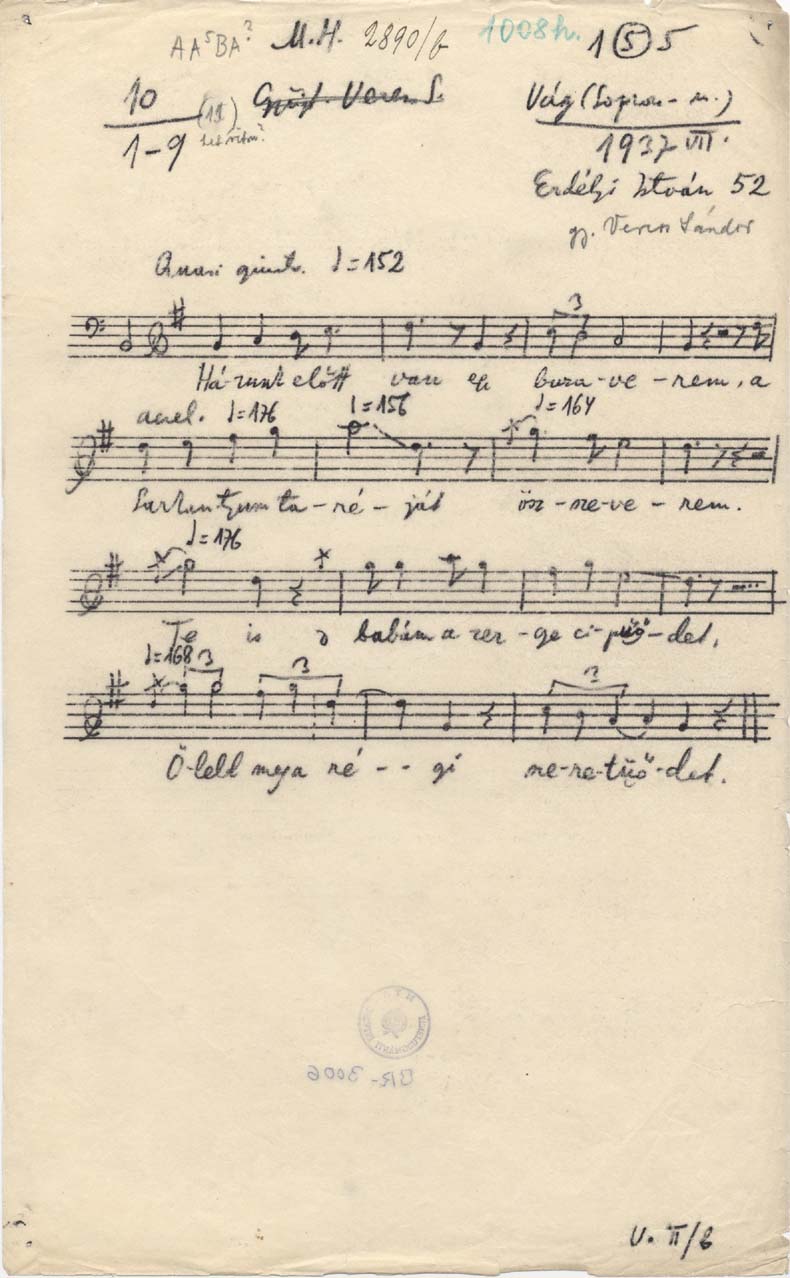 AA⁵BA? M.H. 2890/b 1008h. 1 5 5
10 (11) Gyűjt. Veress S. Vág (Sopron-m.)
1-9 1937 VII.
Erdélyi István 52
gy. Veress Sándor
Quasi giusto. ♩=152
3
Há-zunk előtt van egy buza-ve-rem, a
accel. ♩=176 ♩=156 ♩=164
Sarkantyum ta-ré-ját ösz-sze-ve-rem.
♩=176
Te is babám a zer-ge ci-pűő-det,
♩=168 3 3 3
Ö-leld meg a ré-- gi sze-re-tűő-det.
BR-3006
V. II/b